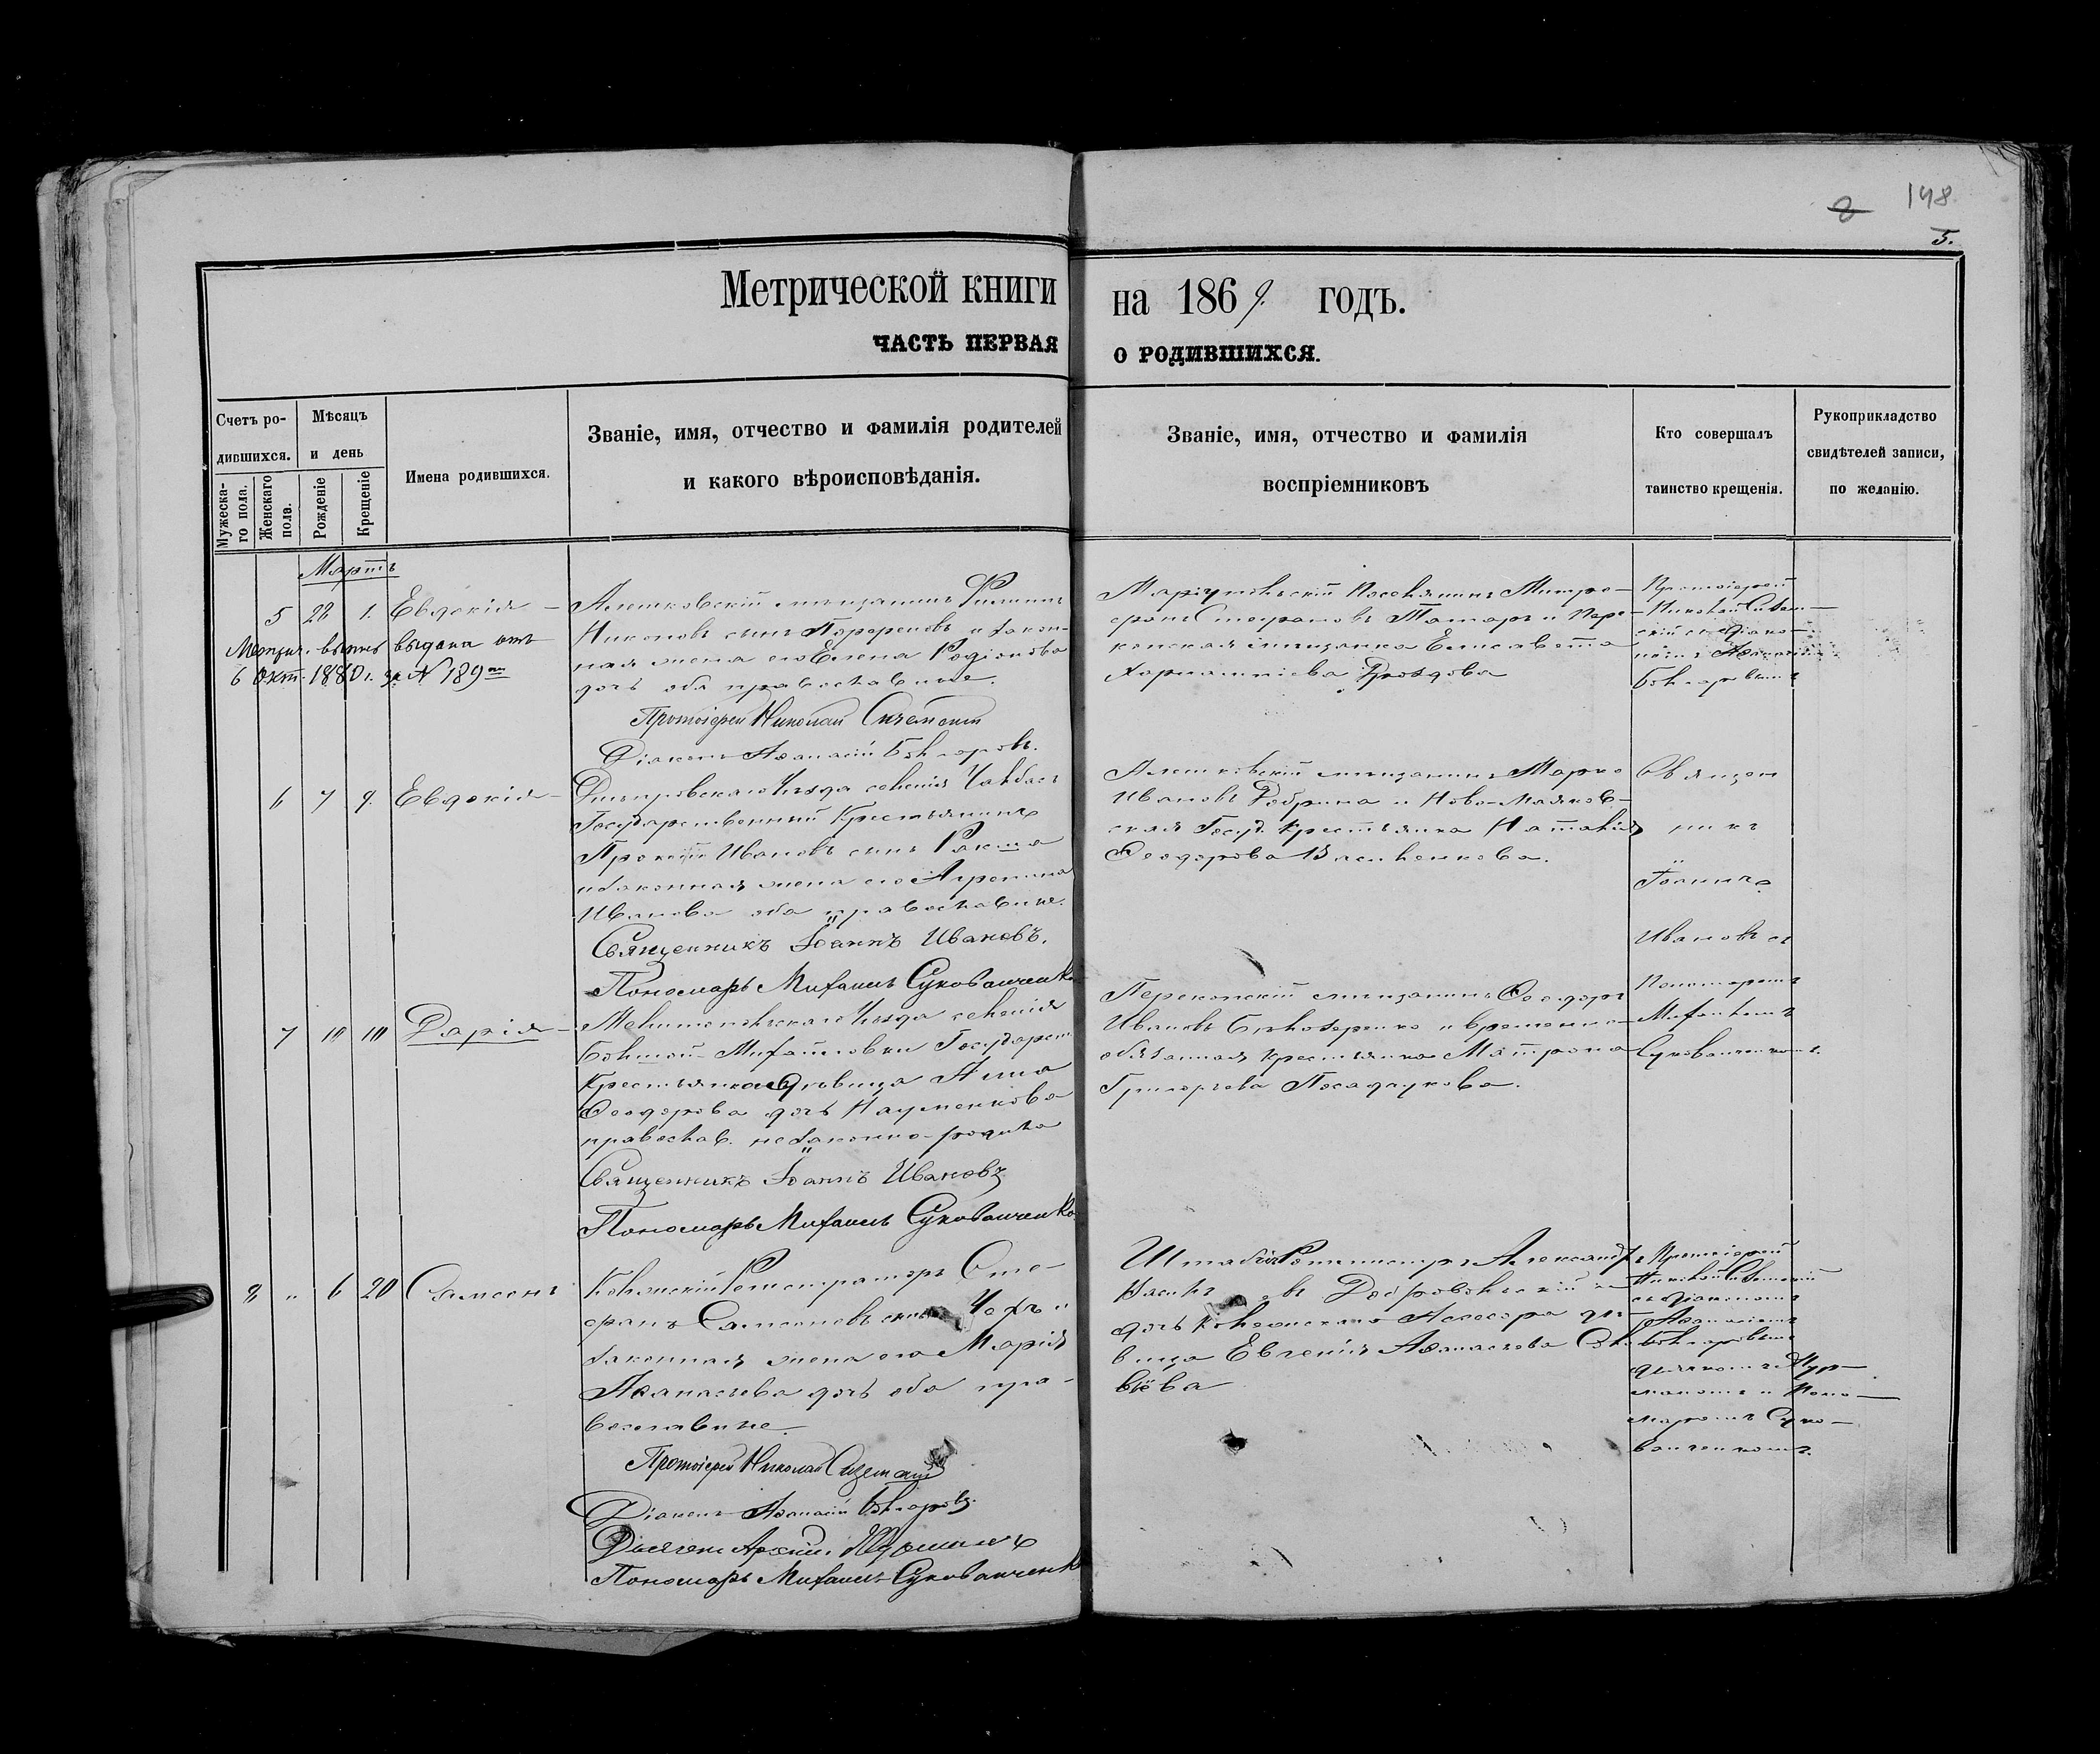 148
5.
Метрической книги на 1869. годъ.
ЧАСТЬ ПЕРВАЯ О РОДИВШИХСЯ.
Счетъ ро-
дившихся.
Мужеска-
го пола.
Женскаго
пола.
Мѣсяцъ
и день
Рожденіе
Крещеніе
Имена родившихся.
Званіе, имя, отчество и фамилія родителей
и какого вѣроисповѣданія.
Званіе, имя, отчество и фамилія
воспріемниковъ
Кто совершалъ
таинство крещенія.
Рукоприкладство
свидѣтелей записи,
по желанію.
Мартъ
5 28 1. Евдокія
Метрич. выпись выдана отъ
6 Окт. 1880 г. за № 189
Алешковскій мѣщанинъ Филиппъ
Никоновъ сынъ и закон-
ная жена его Елена Родіонова
дочь оба православные.
Протоіерей Николай
Діаконъ Аѳанасій
Маріупольскій поселянинъ Митро-
фанъ Стефановъ Татаръ и Пере-
копская мѣщанка Елисавета
Дроздова
Протоіерей
Николай
6 7 9. Евдокія
Днѣпровскаго Уѣзда селенія Чалбасъ
Государственный Крестьянинъ
Иванов сынъ
и законная жена его Агрипина
Иванова оба православные.
Священникъ Іоаннъ Ивановъ.
Пономарь Михаилъ Сукованченко
Алешковскій мѣщанинъ Марко
Ивановъ Добрина и Ново-Маячков-
ская Госуд. Крестьянка Наталія
Ѳеодорова Василенкова.
Священ
никъ
Іоаннъ
Ивановъ съ
Пономаремъ
Михаиломъ
Сукованченкомъ.
7 10 10 Дарія
Мелитопольскаго Уѣзда селенія
Большой Михайловки Государст.
Крестьянка дѣвица Анна
Ѳеодорова дочь Науменкова
православ. незаконно-родила
Священникъ Іоаннъ Ивановъ
Пономарь Михаилъ Сукованченко
Перекопскій мѣщанинъ Ѳеодоръ
Ивановъ Бѣлозеренко и временно-
обязанная крестьянка Матрона
Григорьева
8 " 6 20 Самсонъ
Колежскій Регистраторъ Сте-
фанъ Самсоновъ сынъ Чехъ и
законная жена его Марія
Аѳанасьева дочь оба пра-
вославные.
Протоіерей Николай
Діаконъ Аѳанасій
Дьячекъ
Пономарь Михаилъ Сукованченко
Штабсъ Ротмистръ Александръ
Добровольскій и
дочь Колежскаго Асессора дѣ-
вица Евгенія Аѳанасьева Соло-
вьева
Протоіерей
Николай
съ діакономъ
Аѳанасіемъ
дьячкомъ
и Поно-
маремъ Суко-
ванченкомъ.